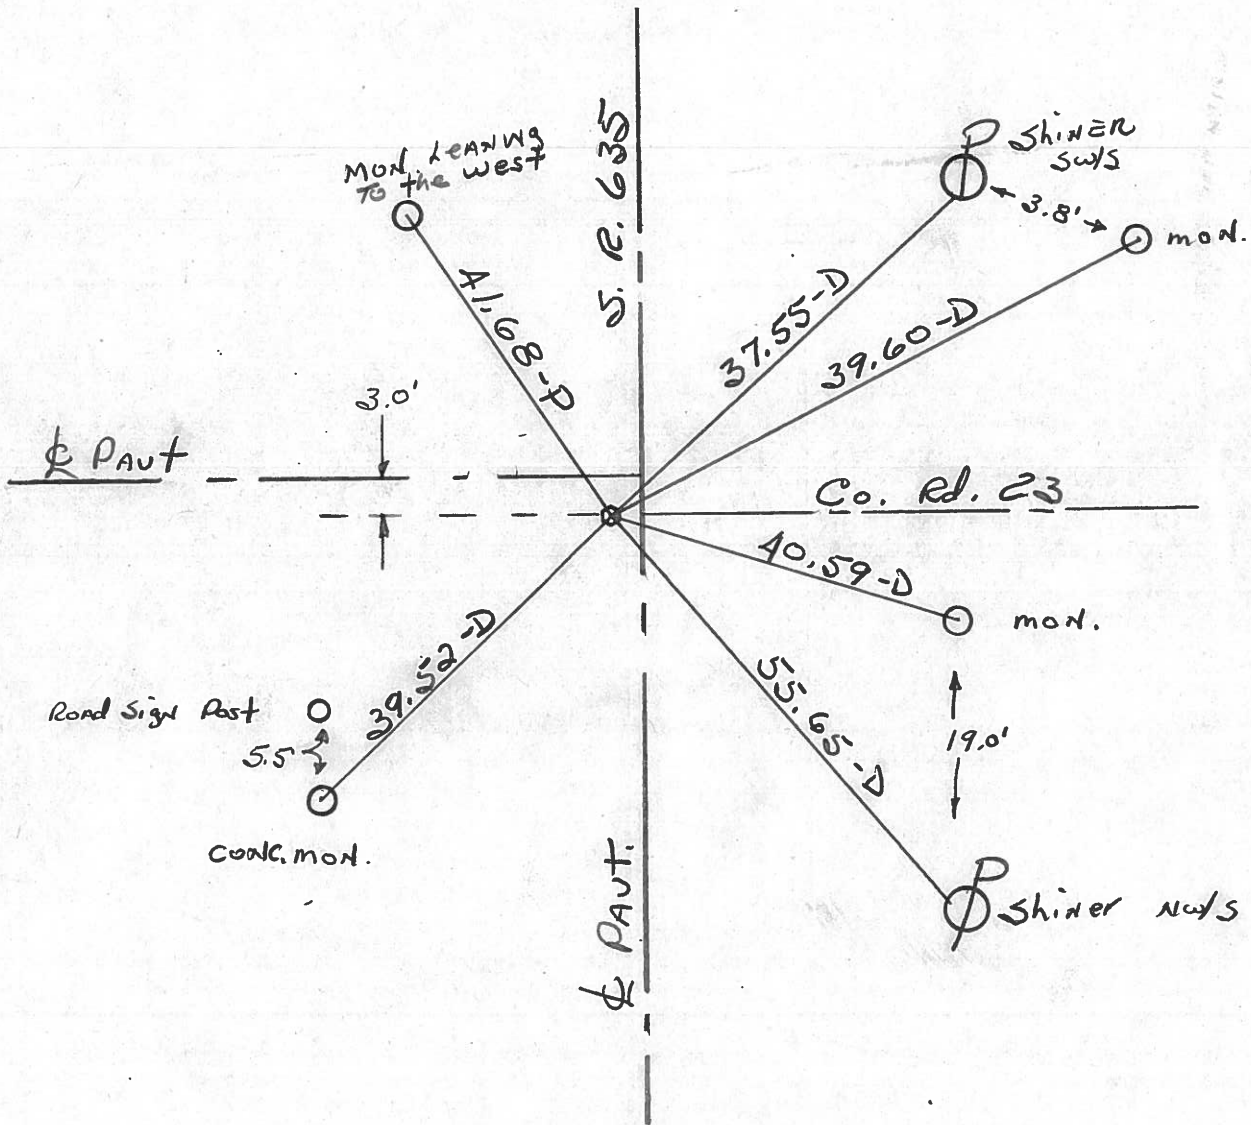 MON. LEANING
To the west
S. R. 635
P
SHINER
SW/S
3.8'
MON.
41.68-D
37.55-D
39.60-D
3.0'
℄ PAVT
Co. Rd. 23
40.59-D
MON.
39.52-D
55.65-D
Road Sign Post
5.5'
19.0'
CONC. MON.
℄ PAVT.
P
Shiner NW/S